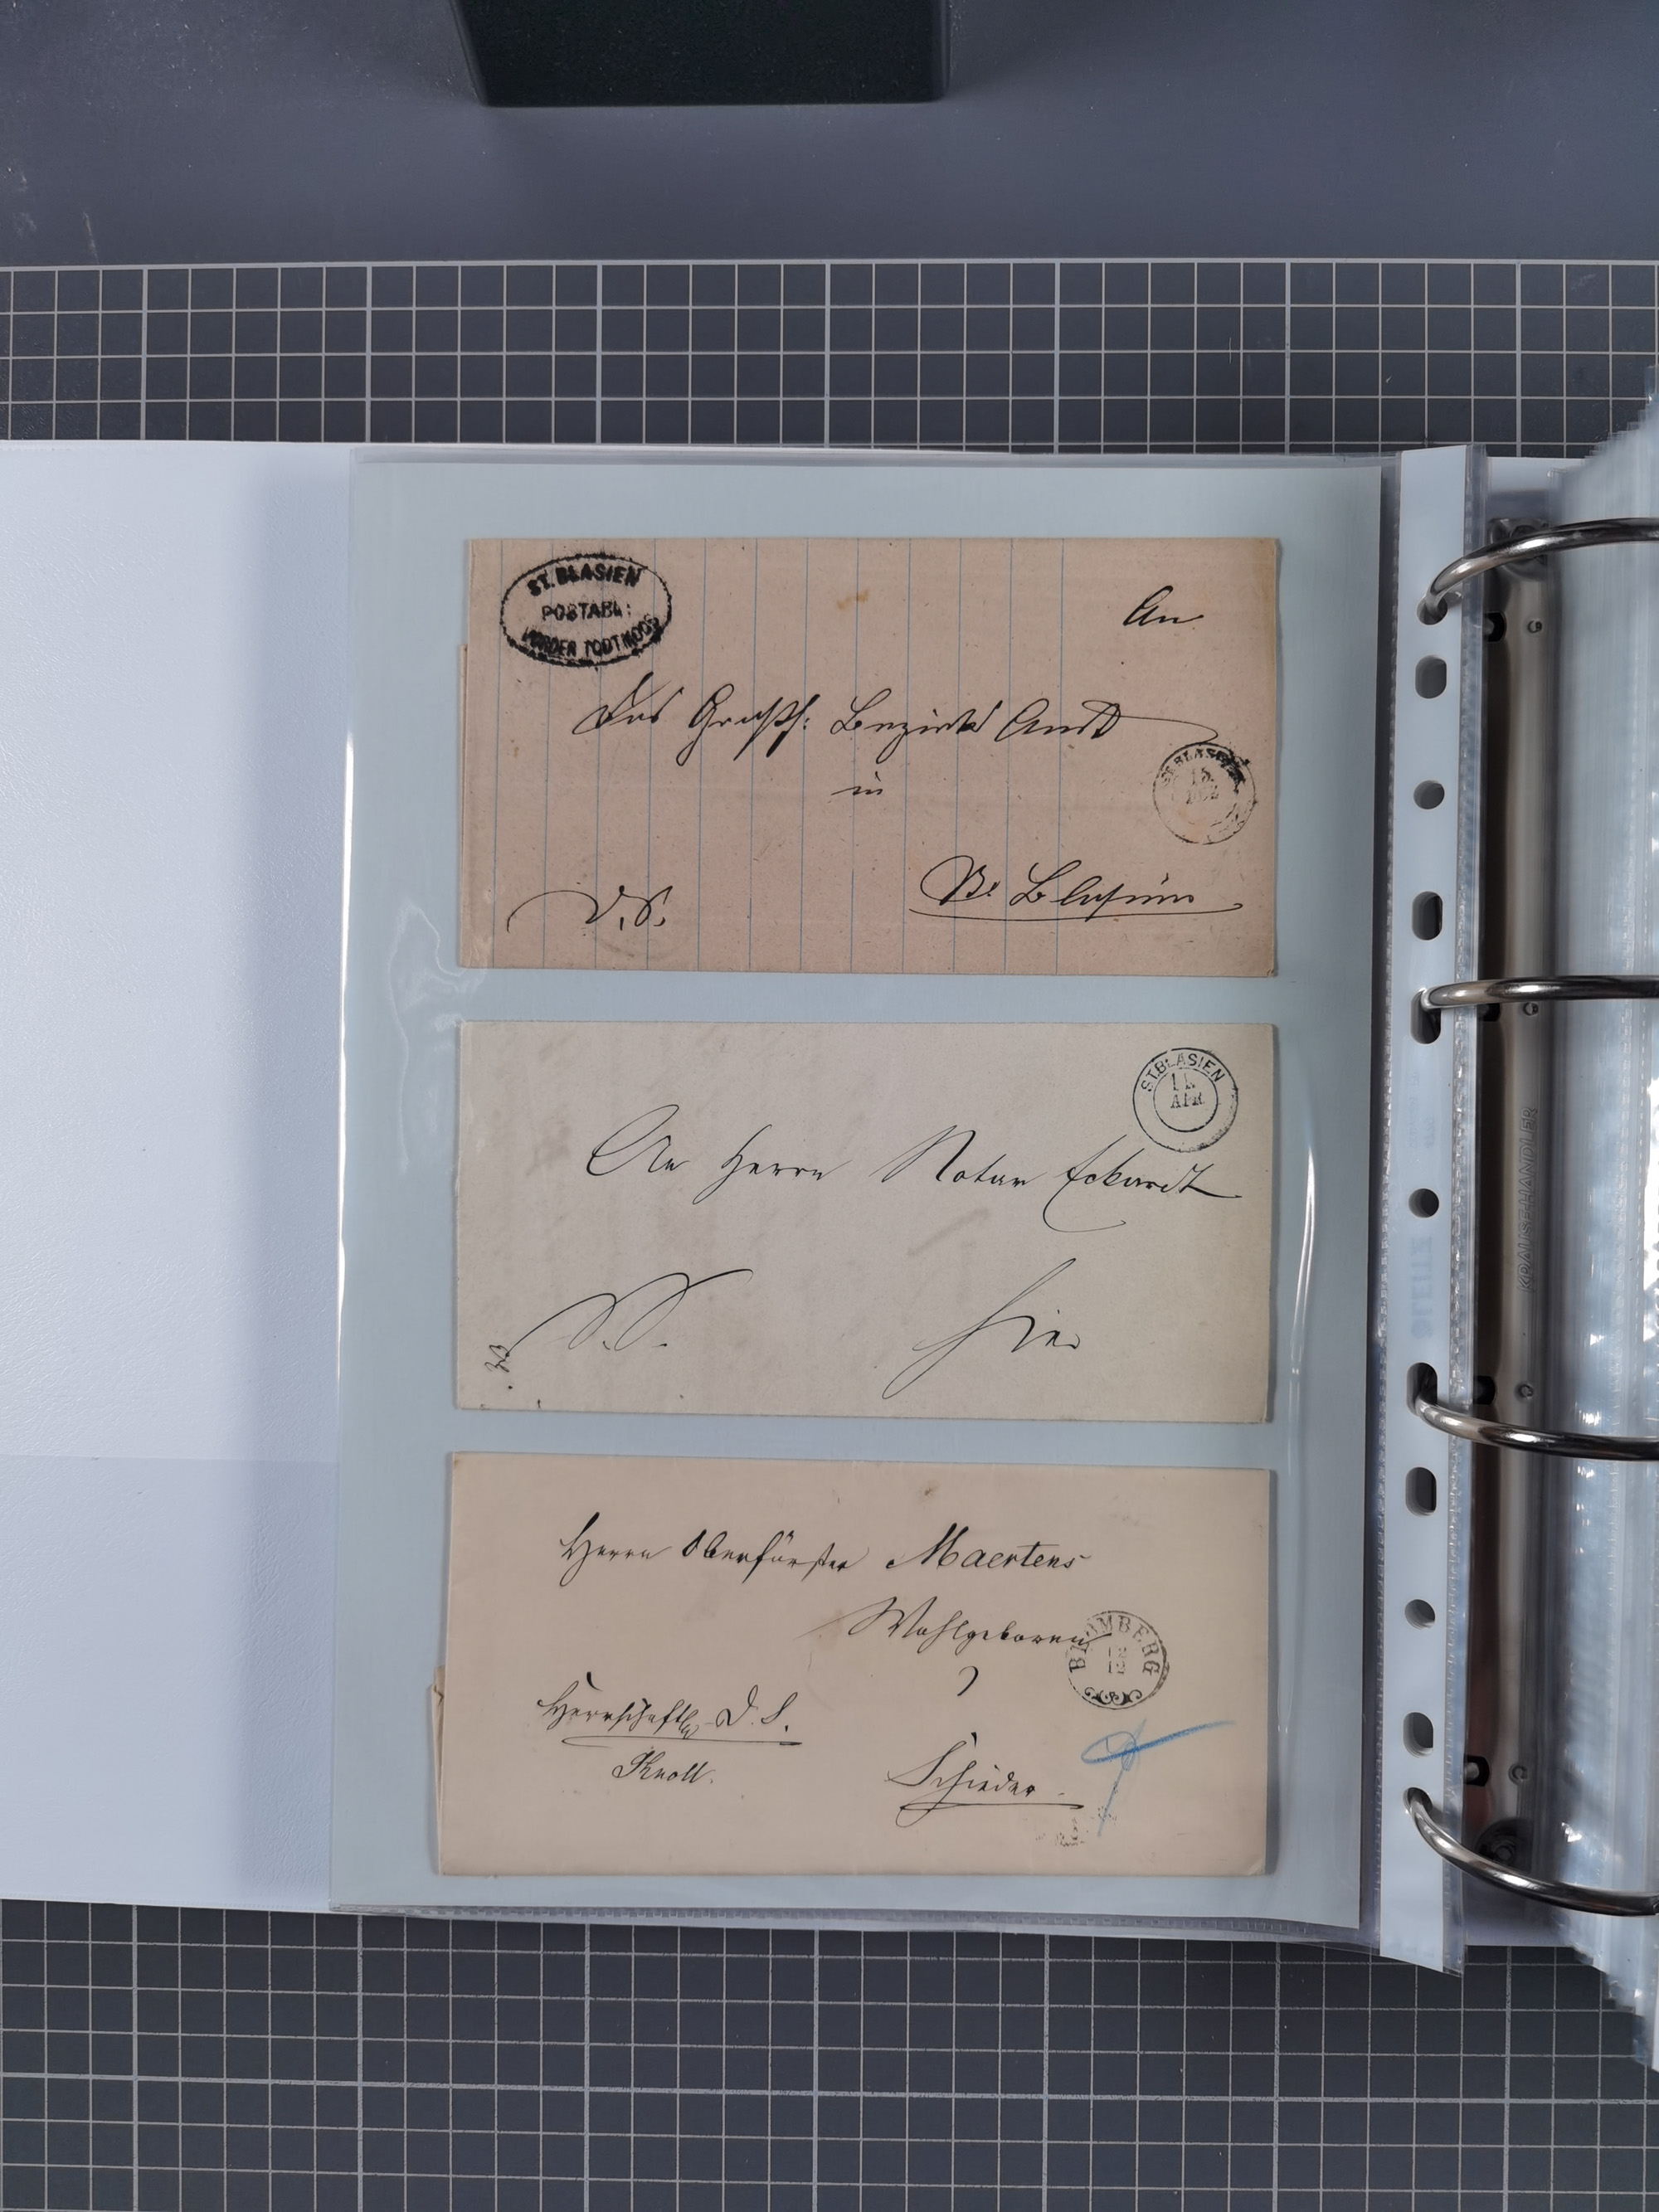 ST. BLASIEN
POSTABL:
VORDER TODTMOOS
An
Das Großh: Bezirks Amt
in
ST. BLASIEN
15
St Blasien
D. S.
ST. BLASIEN
APR.
An Herrn Notar Eckardt
D. S.
hier
Herrn Oberförster Maertens
Wohlgeboren
BLOMBERG
12
Herrschaftl. D. S.
Knoll.
Schieder.
LEITZ
KRAUSEHÄNDLER